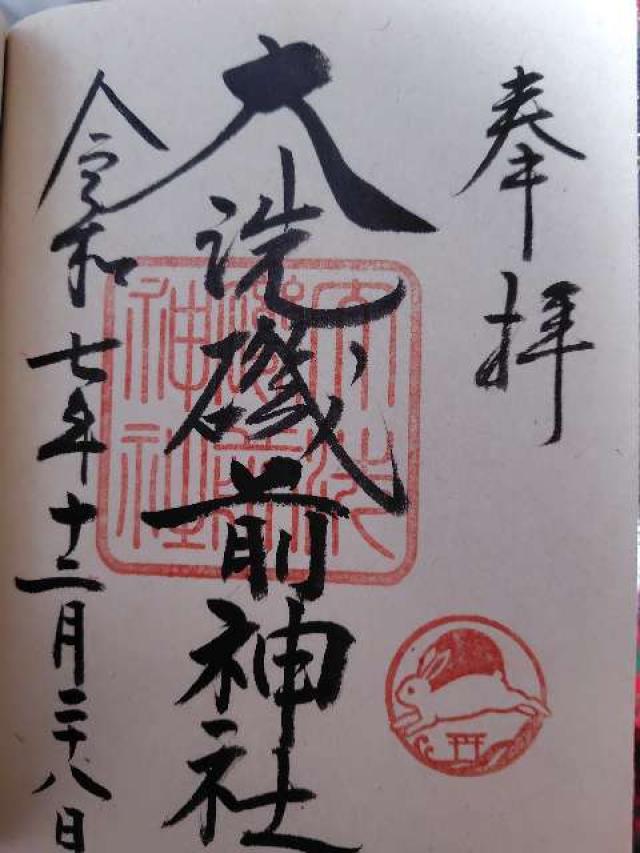 奉拝
大洗磯前神社
大洗磯前神社
令和七年十二月二十八日